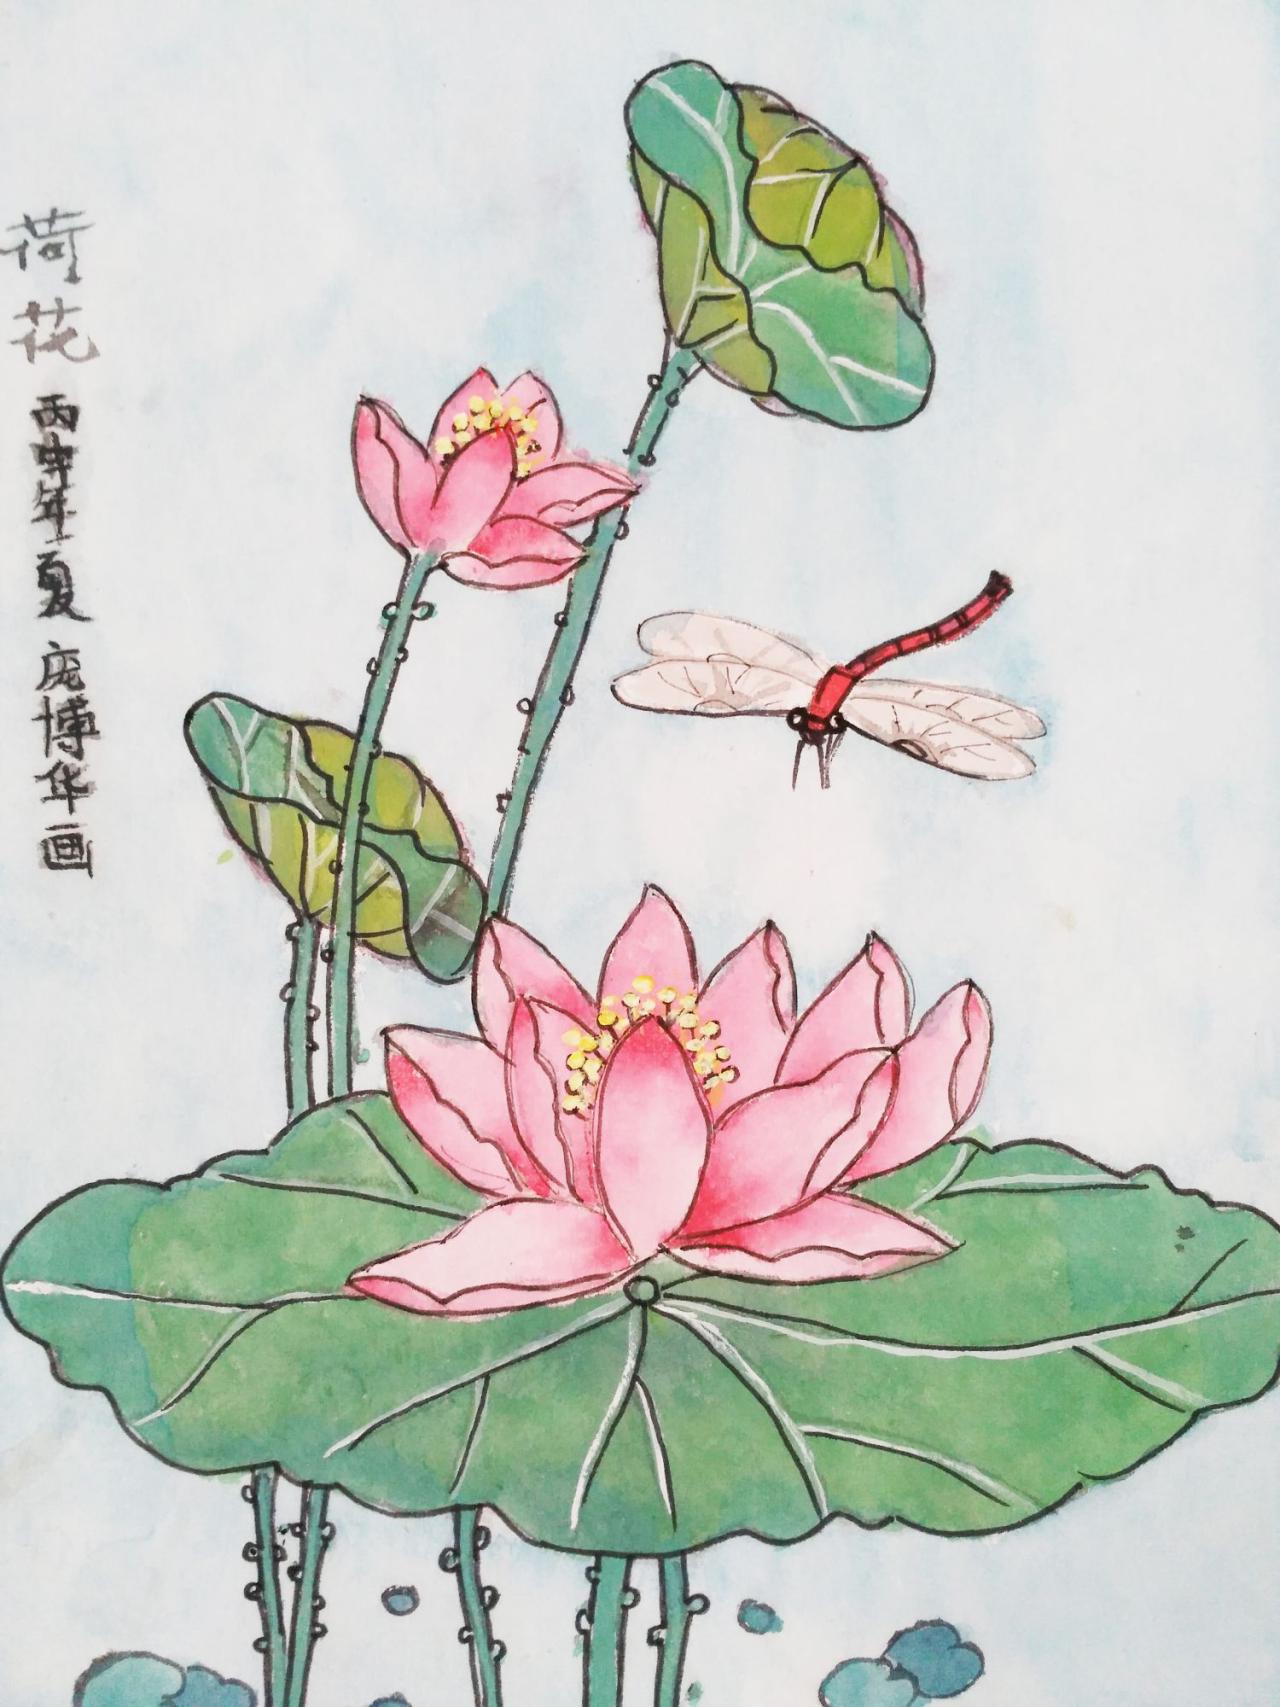 荷花 丙申年夏 庞博华画